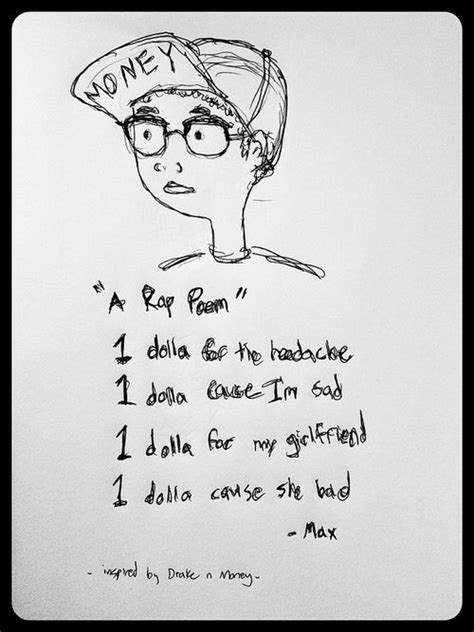 MONEY
"A Rap Poem"
1 dolla for the headache
1 dolla cause I'm sad
1 dolla for my girlfriend
1 dolla cause she bad
- Max
- inspired by Drake n Money -